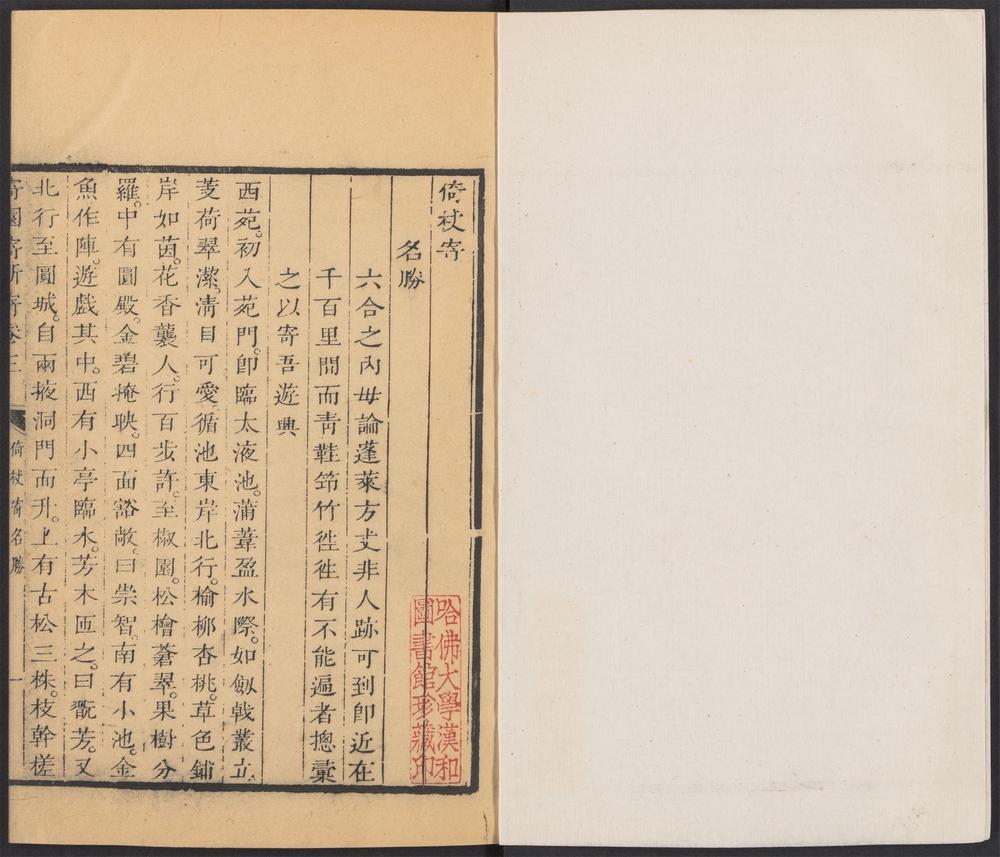 倚杖寄
名勝
六合之內毋論蓬萊方丈非人跡可到卽近在
千百里間而靑鞋笻竹徃徃有不能遍者摠彙
之以寄吾遊興
西苑。初入苑門。卽臨太液池。蒲葦盈水際。如劔戟叢立
芰荷翠潔。淸目可愛循池東岸北行。榆柳杏桃。草色鋪
岸如茵。花香襲人。行百步許。至椒園。松檜蒼翠。果樹分
羅。中有圓殿。金碧掩映。四面豁敞。曰崇智。南有小池。金
魚作陣。遊戲其中。西有小亭臨水。芳木匝之。曰翫芳。又
北行至圓城。自兩掖洞門而升。上有古松三株。枝幹槎
寄園寄所寄卷三
倚杖寄名勝
一
哈佛大學漢和
圖書館珍藏印